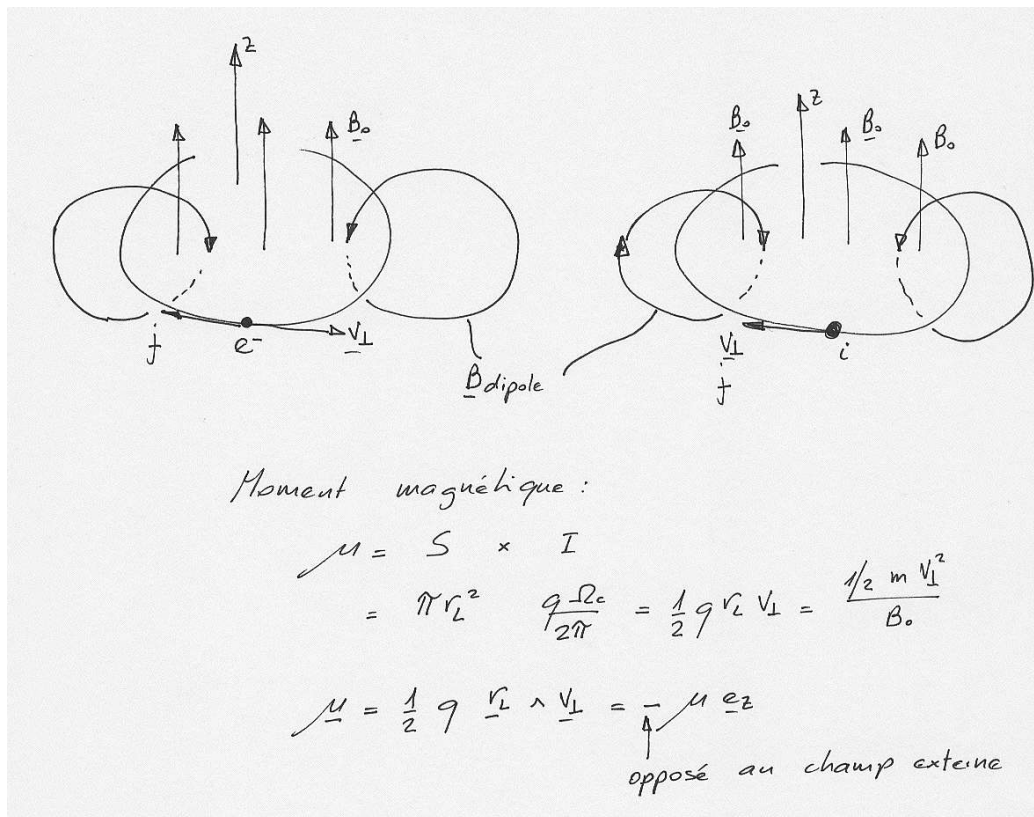 z
B₀
z
B₀
B₀
B₀
j
e⁻
V⊥
V⊥
i
j
B dipole
Moment magnétique :
μ = S × I
= π r_L² qΩc/2π = 1/2 q r_L V⊥ = 1/2 m V⊥² / B₀
μ = 1/2 q r_L ∧ V⊥ = - μ e_z
opposé au champ externe